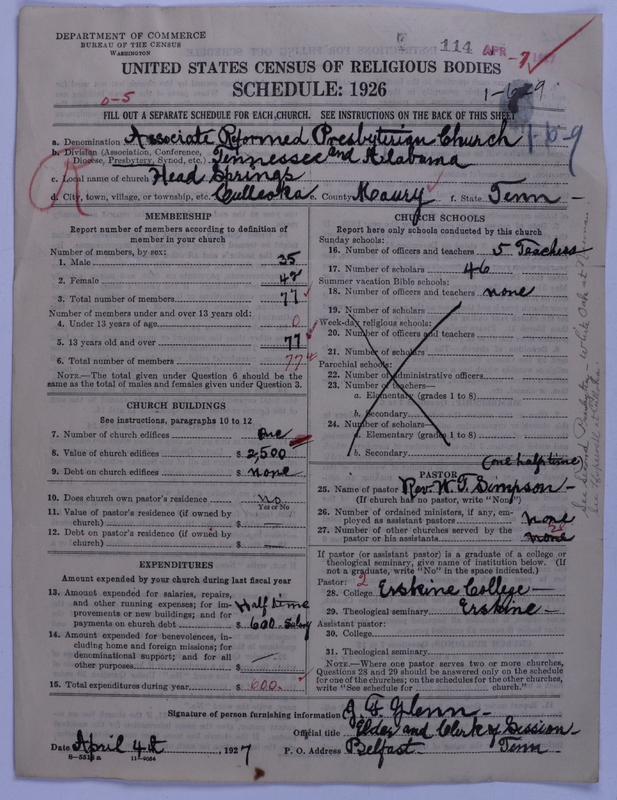 DEPARTMENT OF COMMERCE
BUREAU OF THE CENSUS
WASHINGTON
114 APR -7
UNITED STATES CENSUS OF RELIGIOUS BODIES
SCHEDULE: 1926
1-6-9
0-5
FILL OUT A SEPARATE SCHEDULE FOR EACH CHURCH. SEE INSTRUCTIONS ON THE BACK OF THIS SHEET
1-6-9
a. Denomination Associate Reformed Presbyterian Church
b. Division (Association, Conference, Diocese, Presbytery, Synod, etc.) Tennessee and Alabama
c. Local name of church Head Springs
d. City, town, village, or township, etc. Culleoka e. County Maury f. State Tenn -
MEMBERSHIP
Report number of members according to definition of
member in your church
Number of members, by sex:
1. Male 35
2. Female 42
3. Total number of members 77
Number of members under and over 13 years old:
4. Under 13 years of age 0
5. 13 years old and over 77
6. Total number of members 77
NOTE.—The total given under Question 6 should be
same as the total of males and females given under Question 3.
CHURCH BUILDINGS
See instructions, paragraphs 10 to 12
7. Number of church edifices one
8. Value of church edifices $ 2,500
9. Debt on church edifices $ none
10. Does church own pastor's residence No
Yes or No
11. Value of pastor's residence (if owned by
church) $ —
12. Debt on pastor's residence (if owned by
church) $ —
EXPENDITURES
Amount expended by your church during last fiscal year
13. Amount expended for salaries, repairs,
and other running expenses; for im- Half time
provements or new buildings; and for
payments on church debt $ 600 Salary
14. Amount expended for benevolences, in-
cluding home and foreign missions; for
denominational support; and for all
other purposes $ —
15. Total expenditures during year $ 600.
CHURCH SCHOOLS
Report here only schools conducted by this church
Sunday schools:
16. Number of officers and teachers 5 Teachers
17. Number of scholars 46
Summer vacation Bible schools:
18. Number of officers and teachers none
19. Number of scholars
Week-day religious schools:
20. Number of officers and teachers
21. Number of scholars
Parochial schools:
22. Number of administrative officers
23. Number of teachers—
a. Elementary (grades 1 to 8)
b. Secondary
24. Number of scholars—
a. Elementary (grades 1 to 8)
b. Secondary
(one half time)
PASTOR
25. Name of pastor Rev. W. T. Simpson -
(If church has no pastor, write "None")
26. Number of ordained ministers, if any, em-
ployed as assistant pastors none
27. Number of other churches served by the
pastor or his assistants none
If pastor (or assistant pastor) is a graduate of a college or
theological seminary, give name of institution below. (If
not a graduate, write "No" in the space indicated.)
Pastor: 2
28. College Erskine College -
29. Theological seminary Erskine -
Assistant pastor:
30. College
31. Theological seminary
NOTE.—Where one pastor serves two or more churches,
Questions 28 and 29 should be answered only on the schedule
for one of the churches; on the schedules for the other churches,
write "See schedule for church."
Signature of person furnishing information J F Glenn -
Official title Elder and Clerk of Session -
Date April 4th, 1927 P. O. Address Belfast - Tenn -